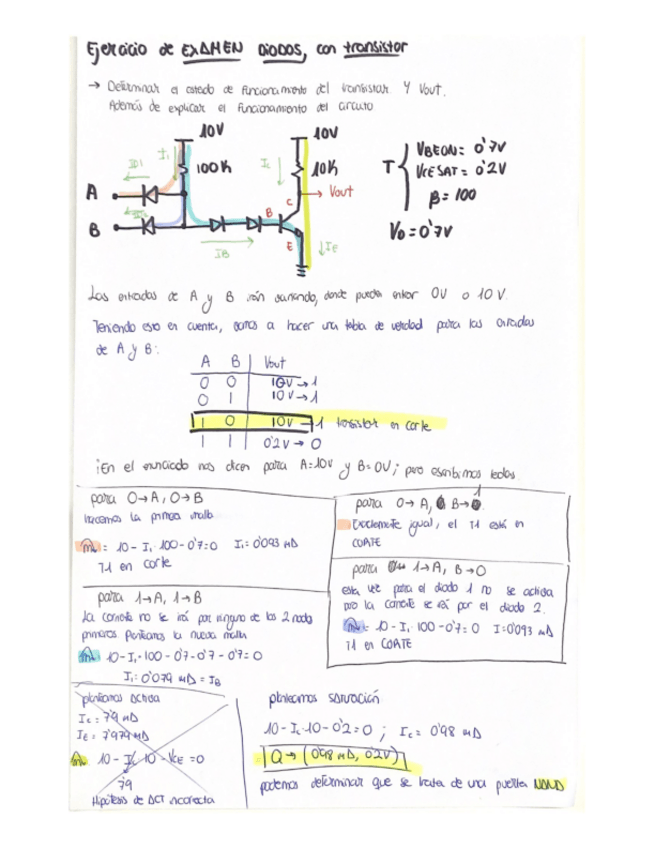 Ejercicio de EXAMEN DIODOS, con transistor
→ Determinar el estado de funcionamiento del transistor y Vout.
Además de explicar el funcionamiento del circuito
10V
10V
ID1
I1
100K
Ic
10K
T
VBEON = 0'7V
VCESAT = 0'2V
β = 100
Vo = 0'7V
A
B
C
→ Vout
B
E
IB
IE
Las entradas de A y B irán variando, donde pueden entrar 0V o 10V.
Teniendo esto en cuenta, vamos a hacer una tabla de verdad para las entradas
de A y B:
A B Vout
0 0 10V → 1
0 1 10V → 1
1 0 10V → 1 transistor en corte
1 1 0'2V → 0
¡En el enunciado nos dicen para A=10V y B=0V; pero escribimos todas
para 0→A, 0→B
hacemos la primera malla
m1 = 10 - I1·100 - 0'7 = 0 I1 = 0'093 mA
T1 en corte
para 0→A, B→1
Exactamente igual, el T1 está en
CORTE
para 1→A, B→0
esta vez para el diodo 1 no se activa
pero la corriente se irá por el diodo 2.
m1: 10 - I1·100 - 0'7 = 0 I = 0'093 mA
T1 en CORTE
para 1→A, 1→B
La corriente no se irá por ninguno de los 2 nodos
primeros planteamos la nueva malla
m1: 10 - I1·100 - 0'7 - 0'7 - 0'7 = 0
I1 = 0'079 mA = IB
planteamos Activa
Ic = 7'9 mA
IE = 7'979 mA
10 - Ic·10 - VCE = 0
7'9
Hipótesis de ACT incorrecta
planteamos saturación
10 - Ic·10 - 0'2 = 0 ; Ic = 0'98 mA
Q → (0'98 mA, 0'2V)
podemos determinar que se trata de una puerta NAND